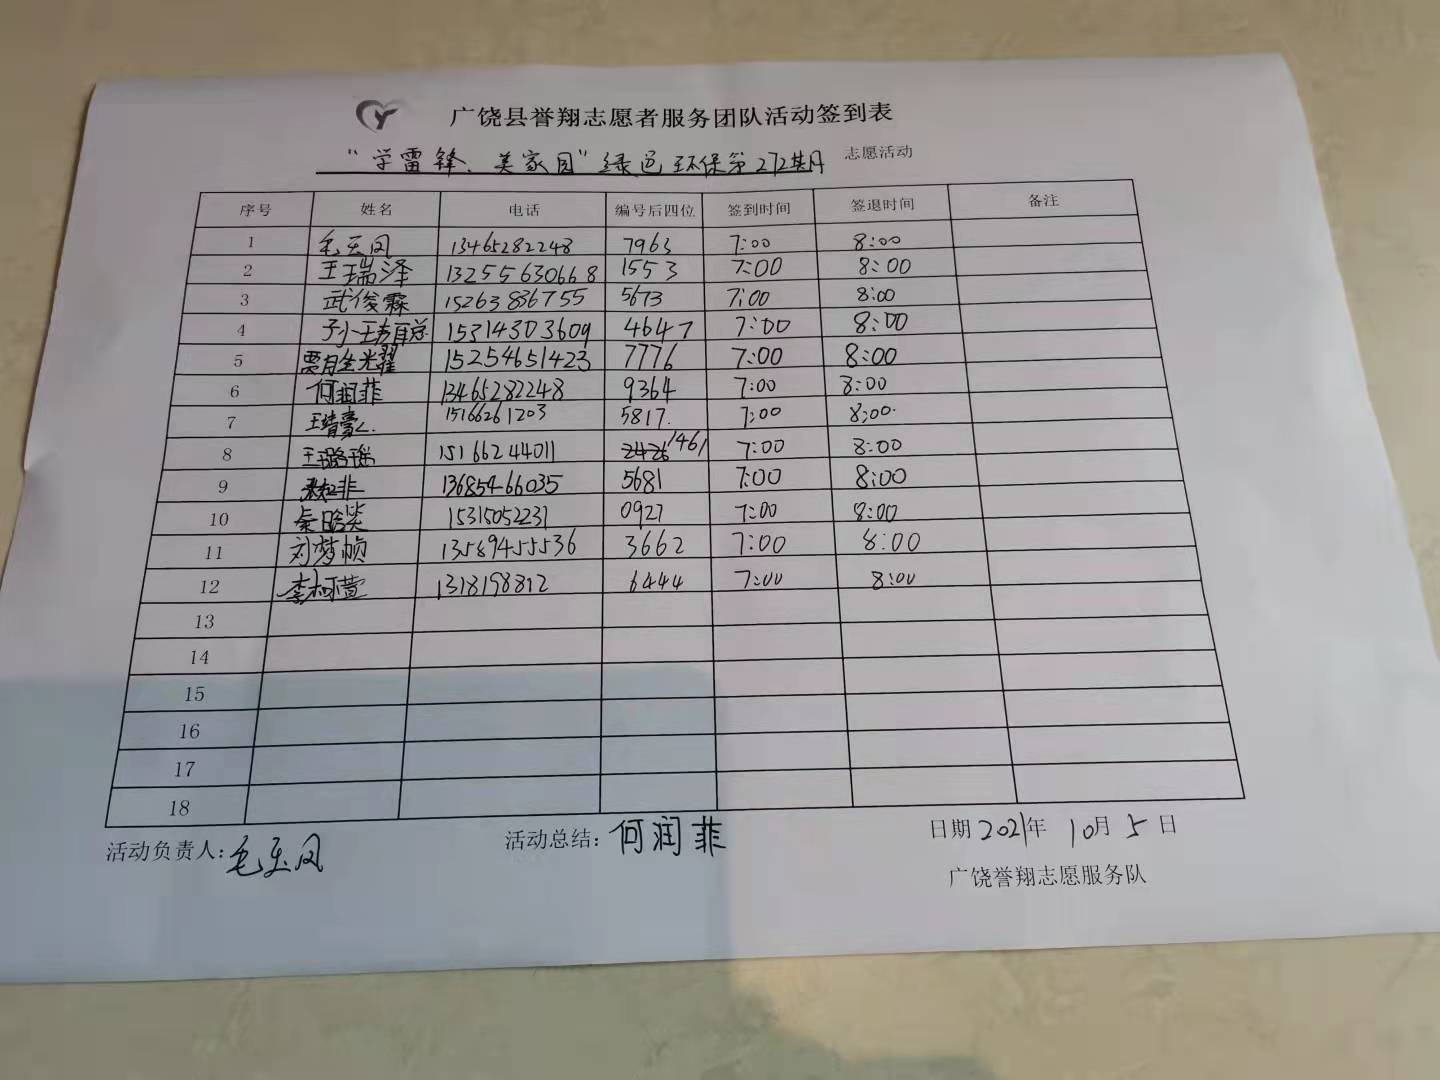 广饶县誉翔志愿者服务团队活动签到表
"学雷锋、美家园"绿色环保第272期 志愿活动
序号 姓名 电话 编号后四位 签到时间 签退时间 备注
1 毛玉凤 13465282248 7963 7:00 8:00
2 王瑞泽 13255630668 1553 7:00 8:00
3 武俊霖 15263836755 5673 7:00 8:00
4 15314303609 4647 7:00 8:00
5 15254651423 7776 7:00 8:00
6 何润菲 13465282248 9364 7:00 8:00
7 15166261203 5817. 7:00 8:00.
8 王璐瑶 15166244011 1461 7:00 8:00
9 13685466035 5681 7:00 8:00
10 15315052231 0927 7:00 8:00
11 刘梦帧 13589455536 3662 7:00 8:00
12 李柯萱 1318198812 6444 7:00 8:00
13
14
15
16
17
18
活动负责人:毛玉凤 活动总结:何润菲 日期2021年10月5日
广饶誉翔志愿服务队